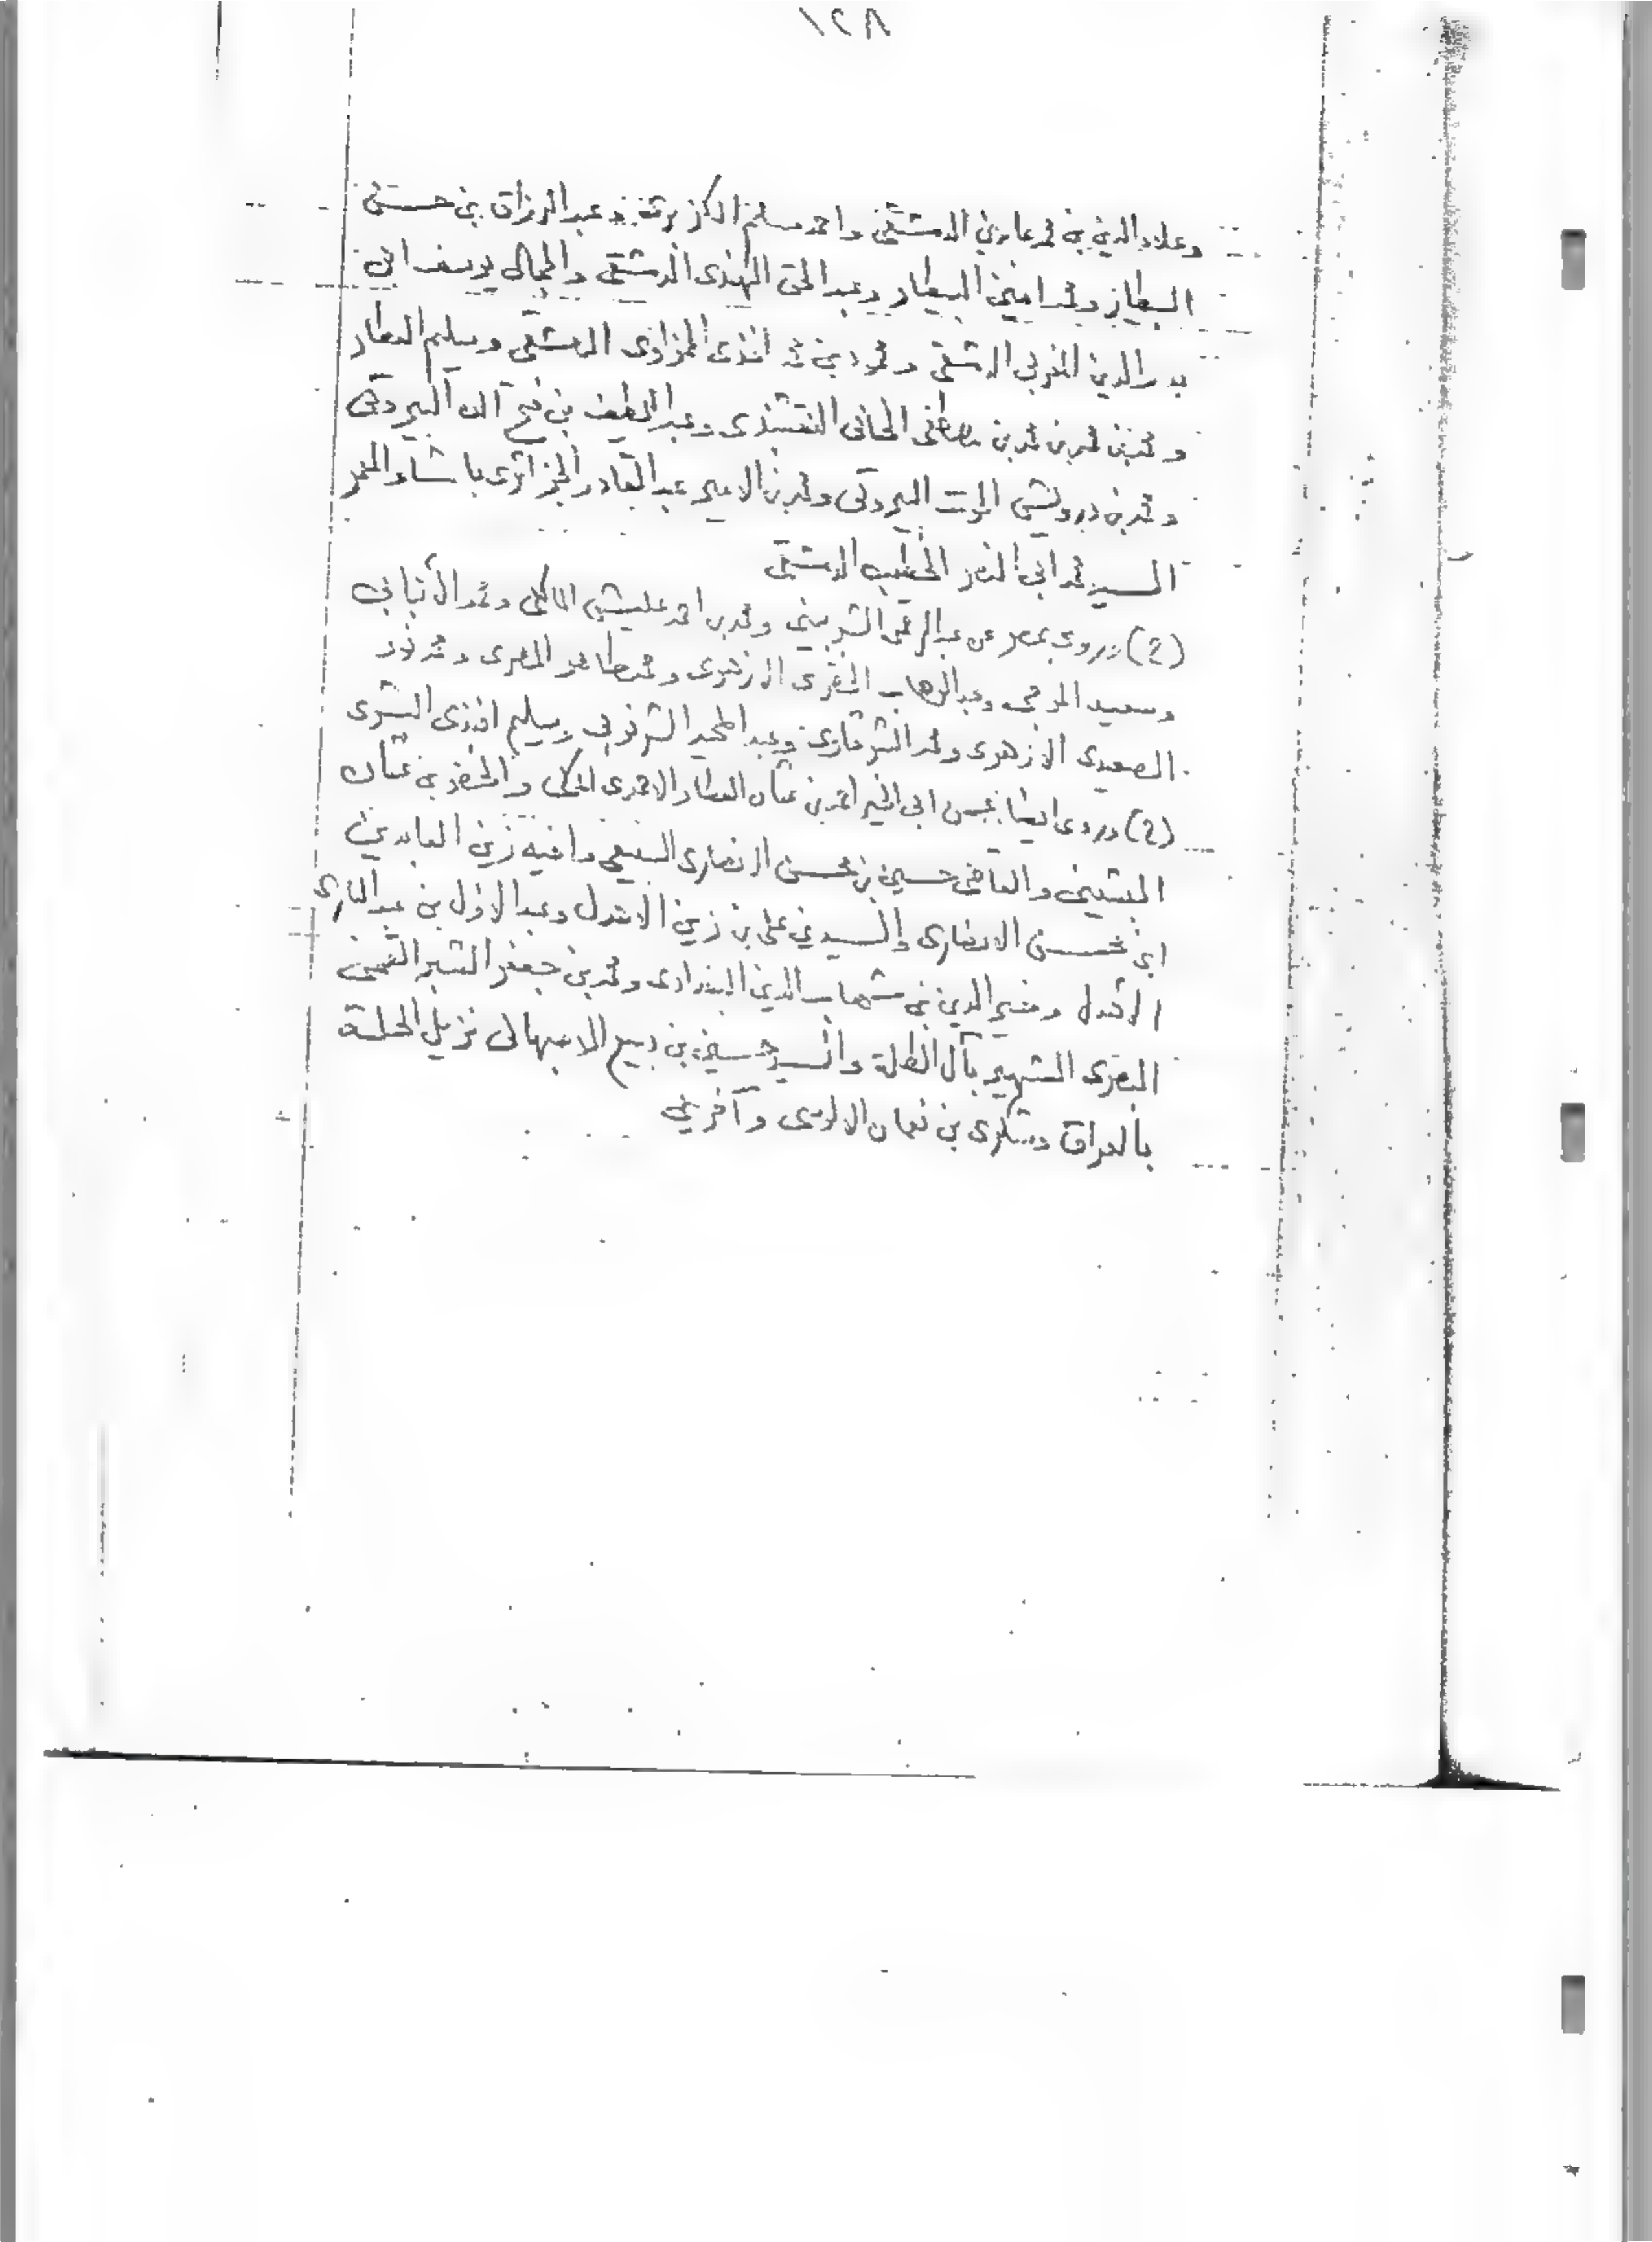 ١٢٨
وعلاء الدين بن محمد عابدين الدمشقي واحمد مسلم الكزبري وعبد الرزاق بن حسن
البيطار ومحمد امين البيطار وعبد الحق الهندى الدمشقى والجمال يوسف ابن
بدر الدين المغربى الدمشقى ومحمود بن محمد افندى الحمزاوى الدمشقى وسليم العطار
ومحمد بن محمد بن محمد بن مصطفى الخانى النقشبندى وعبد اللطيف بن فتح الله البيروتى
ومحمد بن درويش الحوت البيروتى ومحمد بن الامير عبد القادر الجزائرى باشا والمعمر
السيد محمد ابى النصر الخطيب الدمشقى
(2) وروى بمصر عن عبد الرحمن الشربينى ومحمد بن احمد عليش المالكى ومحمد الأنبابى
وسعيد الموجى وعبد الوهاب الازهرى ومحمد طاهر المصرى ومحمد نور
الصعيدى الازهرى ومحمد الشرقاوى وعبد المجيد الشرنوبى وسليم افندى البشرى
(2) وروى ايضا عن ابى الخير احمد بن عثمان العطار الاحمدى المكى والخضر بن عثمان
والقاضى حسين بن محسن الانصارى السبعى واخيه زين العابدين
ابن محسن الانصارى والسيد بن على بن زين الاهدل وعبد الاول بن عبد البارى
الأهدل وخير الدين بن شهاب الدين البغدادى ومحمد بن جعفر الشبر النجفى
البصرى الشهير بآل الطلة والسيد حسين بن ربيع الاصبهانى نزيل الحلة
بالعراق وشكرى بن نعمان الالوسى وآخرين